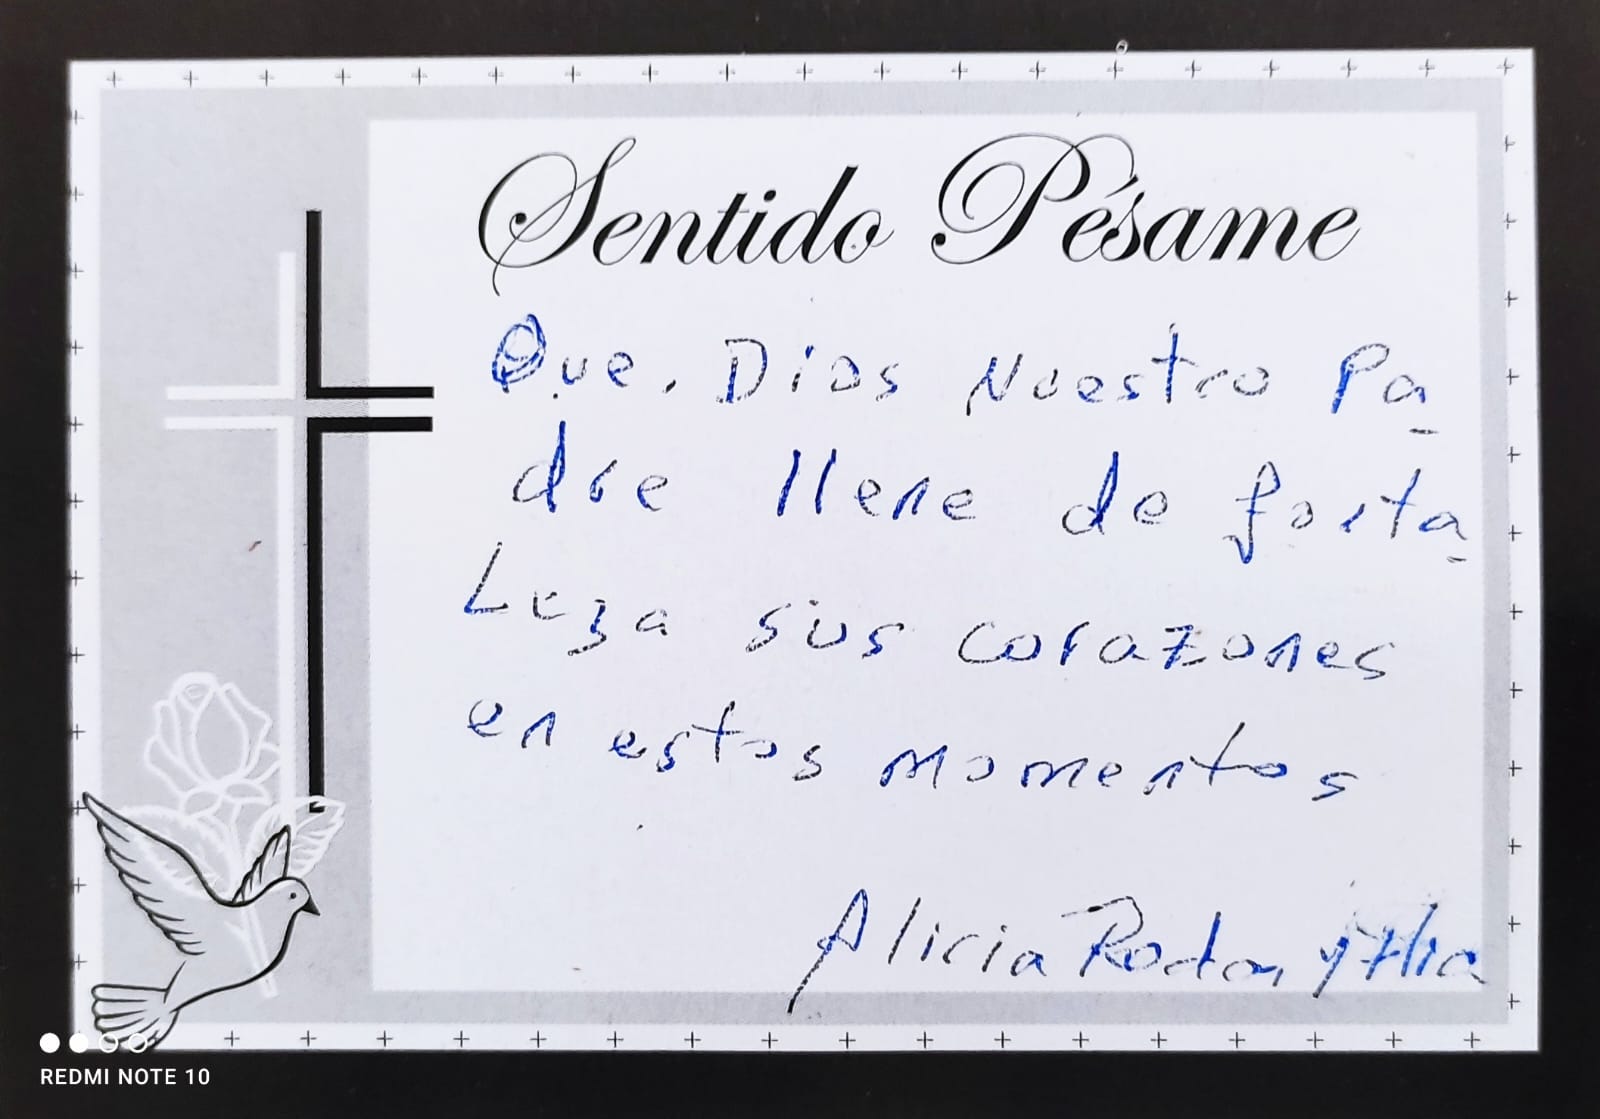 Sentido Pésame
Que. Dios Nuestro Pa-
dre llene de forta-
Leza sus corazones
en estos momentos
Alicia y
REDMI NOTE 10